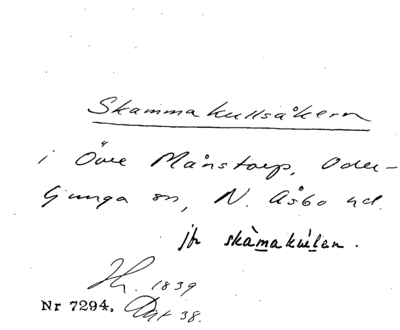 Skammakullsåkern
i Övre Månstorp, Oder-
ljunga sn, N. Åsbo hd.
jfr skàmakùlan.
H. 1839
Nr 7294. Dat 38.